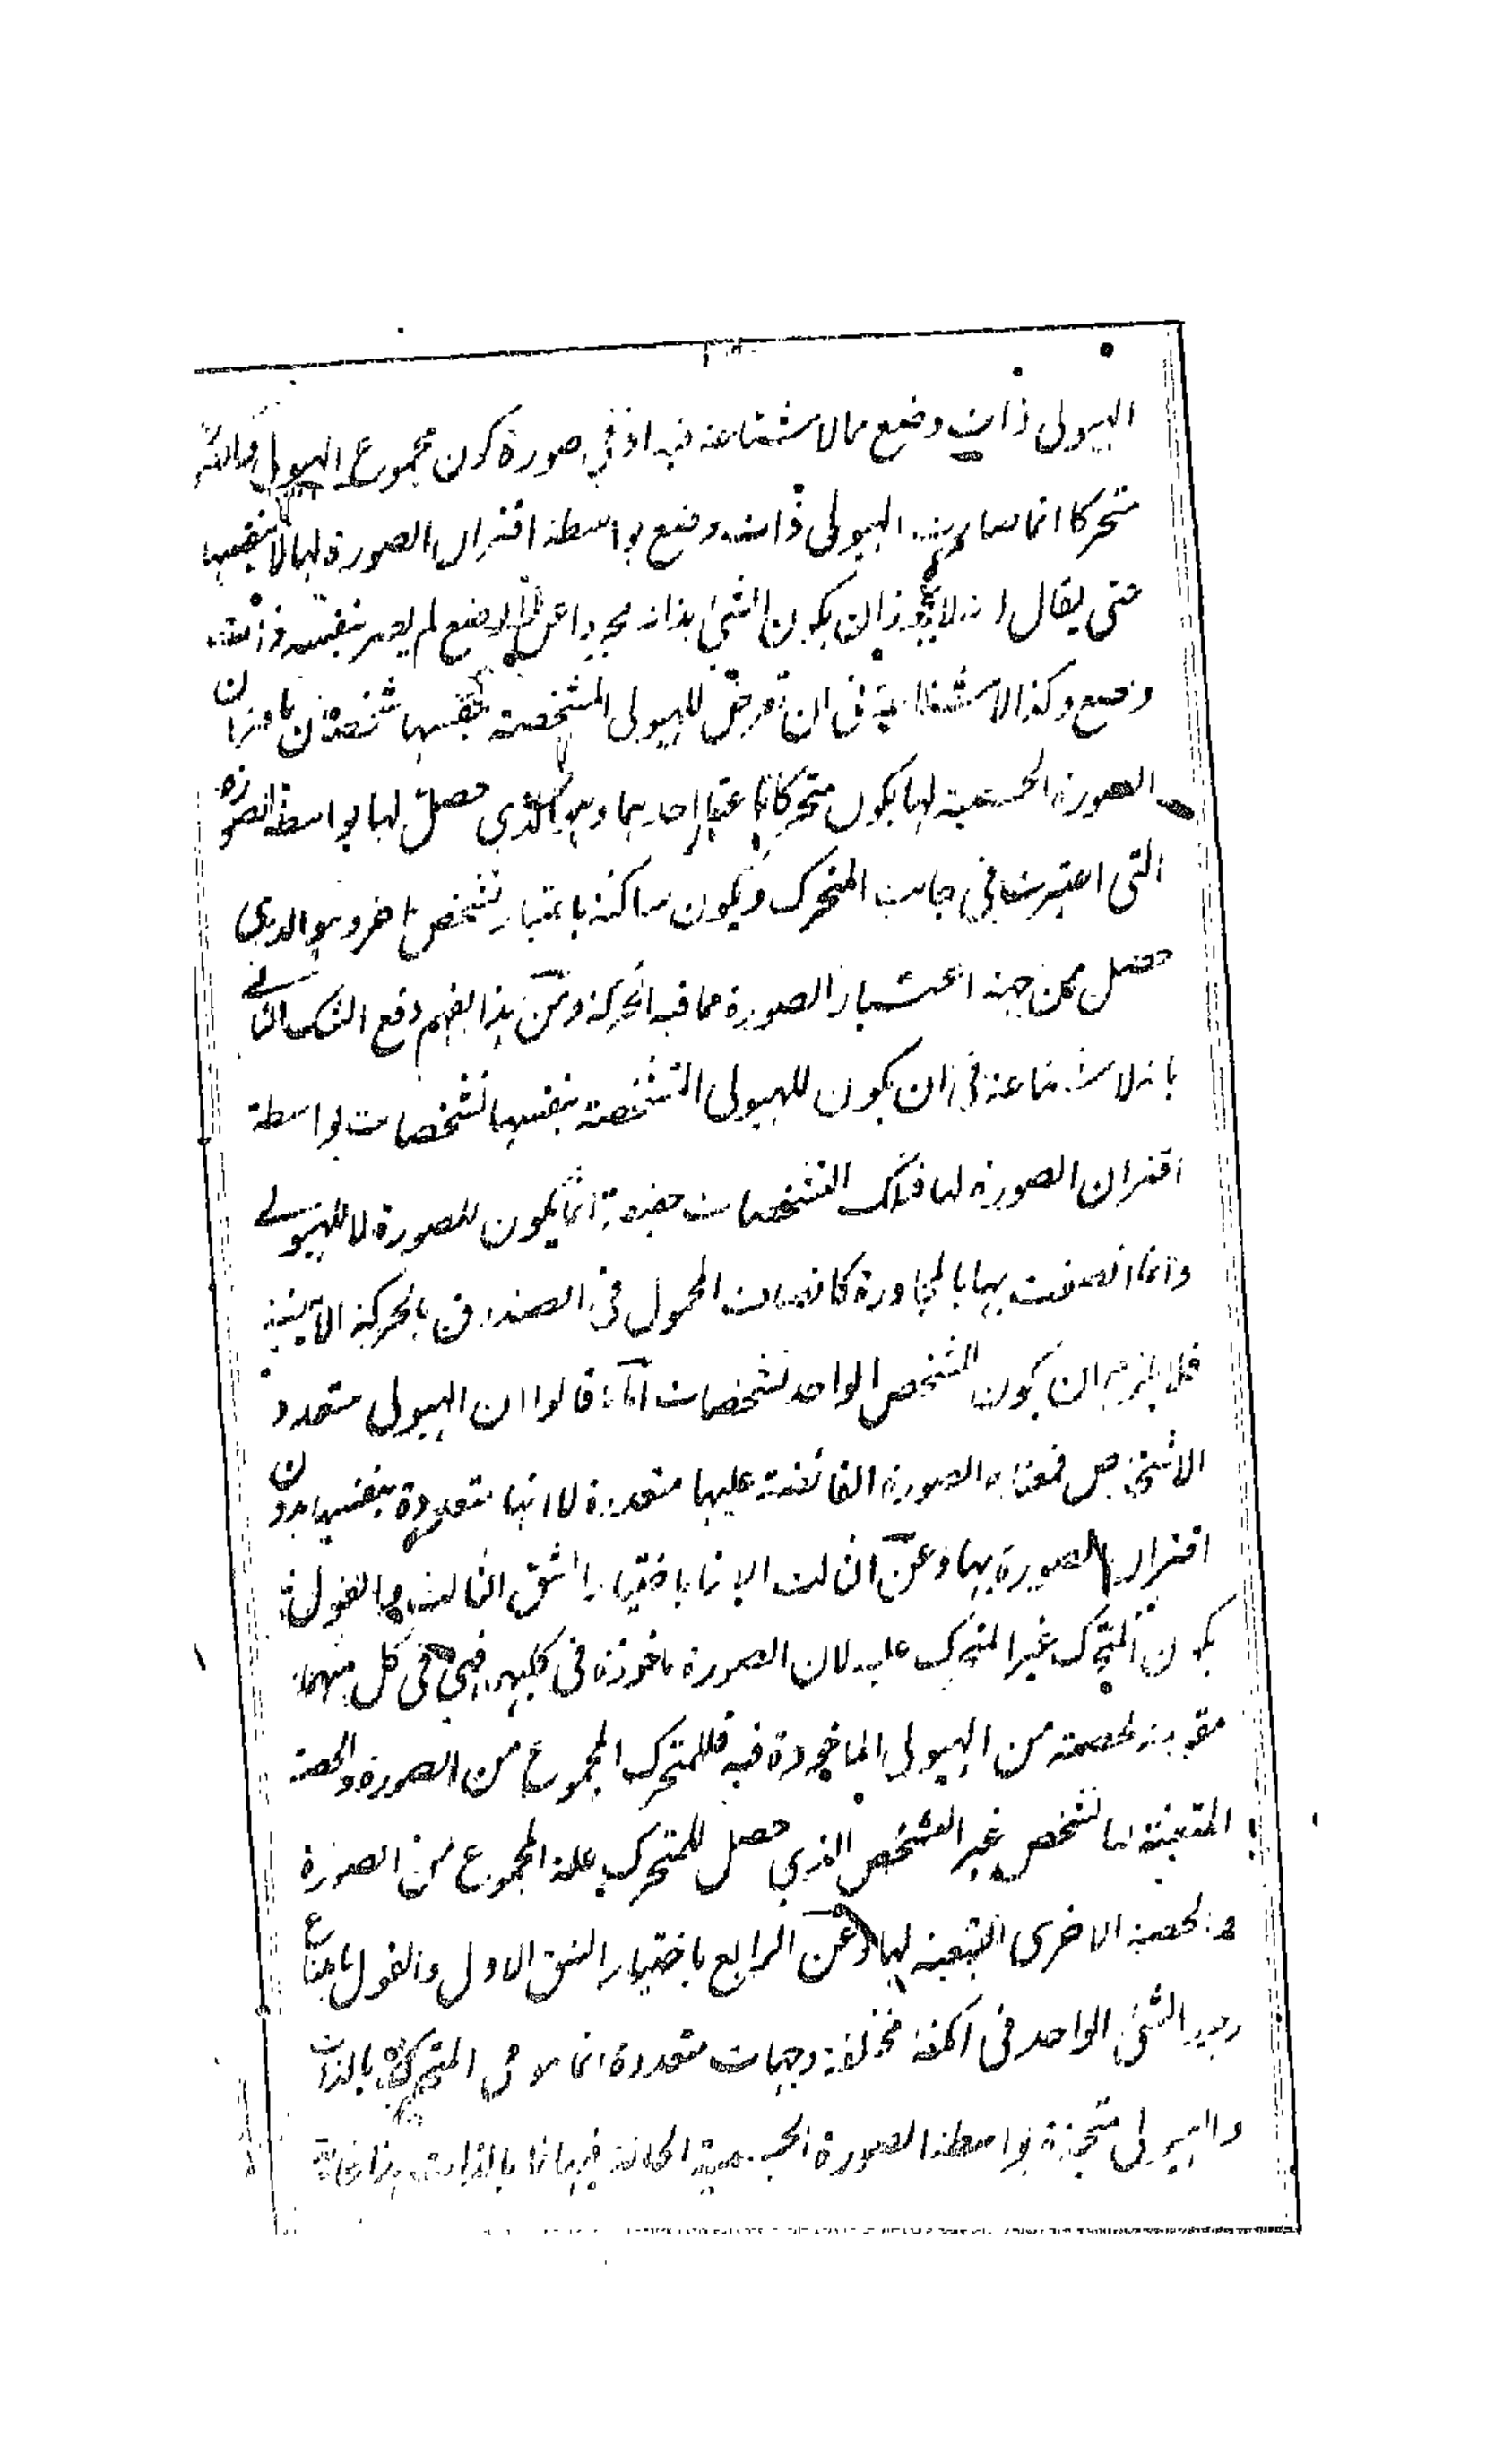 الهيولى ذات وضع مما لا شناعة فيه اذ في صورة كون مجموع الهيولى
متحركا انما صارت الهيولى ذات وضع بواسطة اقتران الصورة لها لا بنفسها
حتى يقال انه لا يجوز ان يكون الشئ بذاته مجردا عن الوضع لم يصر بنفسه ذات
وضع وكذا لا شناعة فى ان تعرض للهيولى المشخصة بنفسها تشخصان باقتران
الصورة الجسمية لها يكون متحركا باعتبار احديهما وهو الذي حصل لها بواسطة الصورة
التى اعتبرت في جانب المتحرك ويكون ساكنة باعتبار تشخص اخر وهو الذي
حصل من جهة اعتبار الصورة مما فيه الحركة ومن هذا يفهم دفع الشك الثانى
بانه لا شناعة في ان يكون للهيولى المتشخصة بنفسها تشخصات بواسطة
اقتران الصورة لها فتلك التشخصات حقيقة انما يكون للصورة لا للهيولى
وانما اتصفت بها بالمجاورة كاتصاف المحمول فى الصندوق بالحركة الاينية
فلا يلزم ان يكون للشخص الواحد تشخصات وما قالوا ان الهيولى متعدد
الاشخاص فمعناه الصورة الفائضة عليها متعددة لا انها متعددة بنفسها بدون
اقتران الصورة بها وعن الثالث باختيار الشق الثالث والقول
يكون المتحرك غير المتحرك عليه لان الصورة ماخوذة فى كليهما فهى فى كل منهما
مقرونة لحصة من الهيولى الماخوذة فيه فللمتحرك المجموع من الصورة والحصة
المتعينة لها تشخص غير التشخص الذي حصل للمتحرك عليه المجموع من الصورة
والحصة الاخرى المتعينة لها وعن الرابع باختيار الشق الاول والقول بامتناع
وجود الشئ الواحد فى امكنة مختلفة وجهات متعددة انما هو فى المتحرك بالذات
والهيولى متحيزة بواسطة الصورة الجسمية الحالة فيها لا بالذات